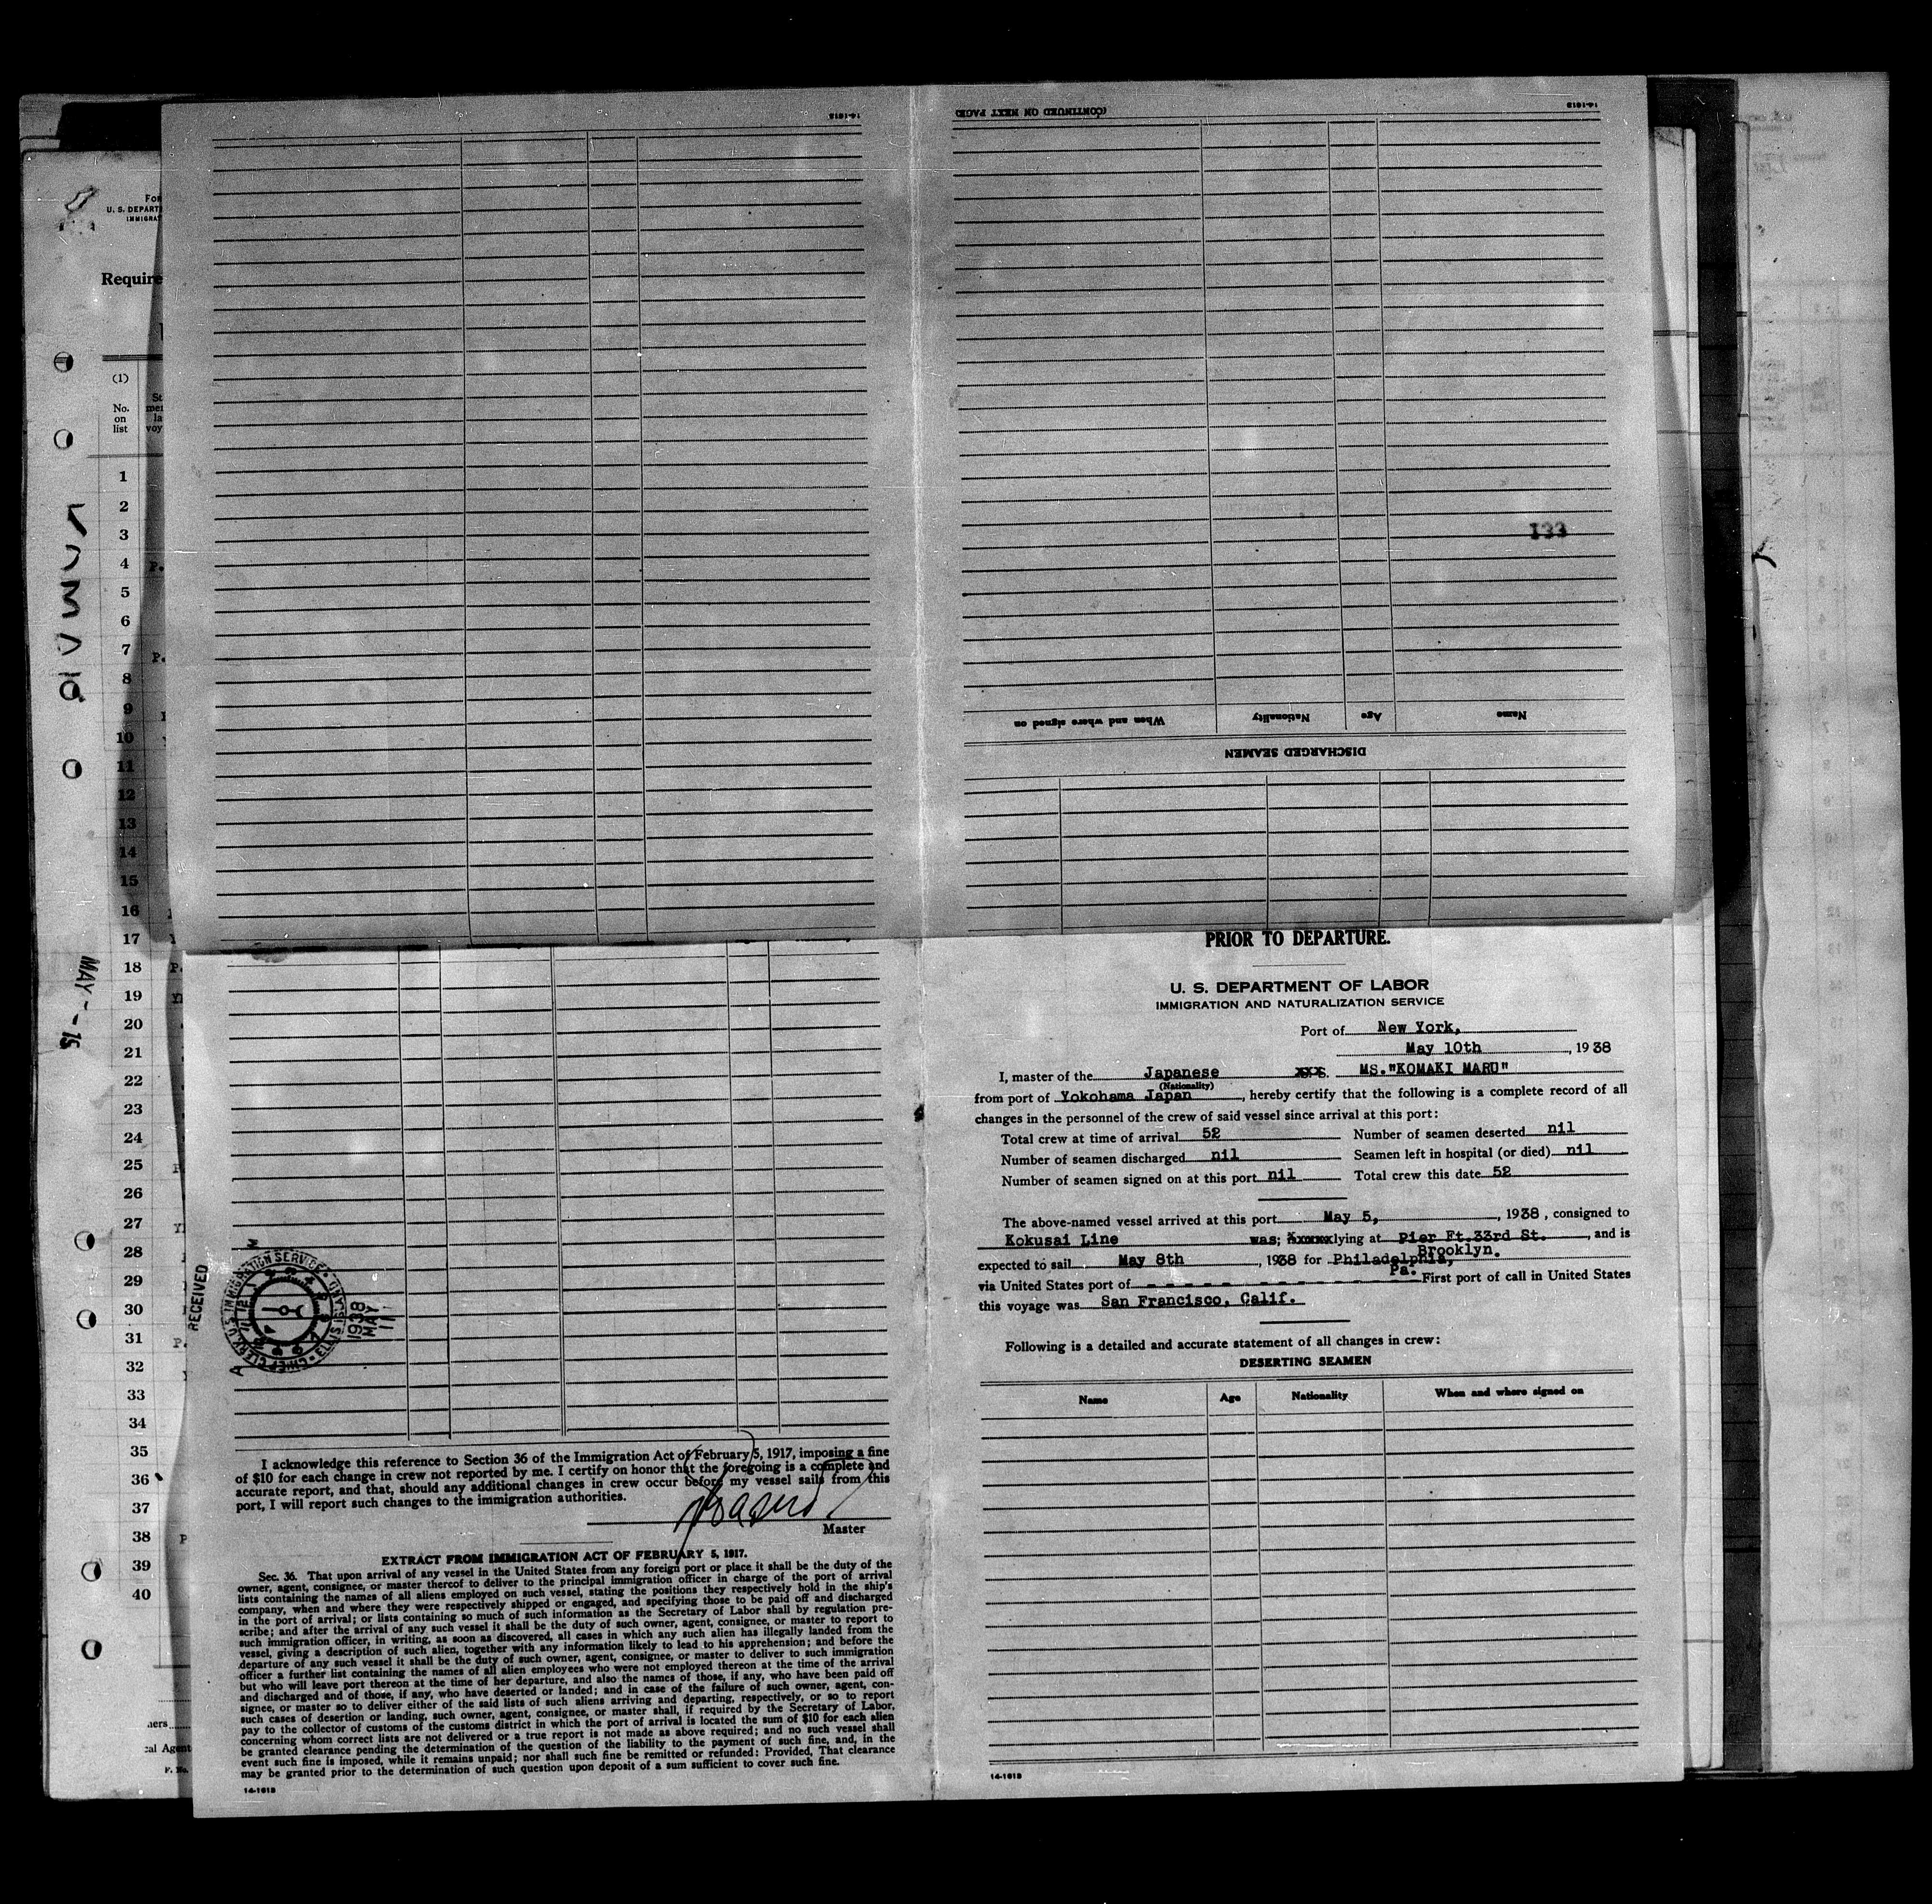 14-1618
(CONTINUED ON NEXT PAGE)
14-1618
133
Name
Age
Nationality
When and where signed on
DISCHARGED SEAMEN
U. S. DEPART
IMMIGRAT
Require
(1)
No.
on
list
1
2
3
4
5
6
7
8
9
10
11
12
13
14
15
16
17
18
19
20
21
22
23
24
25
26
27
28
29
30
31
32
33
34
35
36
37
38
39
40
MAY - 15
RECEIVED
CHIEF CLERK, U.S. IMMIGRATION SERVICE · ELLIS ISLAND
1938
MAY
11
I acknowledge this reference to Section 36 of the Immigration Act of February 5, 1917, imposing a fine
of $10 for each change in crew not reported by me. I certify on honor that the foregoing is a complete and
accurate report, and that, should any additional changes in crew occur before my vessel sails from this
port, I will report such changes to the immigration authorities.
Master
EXTRACT FROM IMMIGRATION ACT OF FEBRUARY 5, 1917.
Sec. 36. That upon arrival of any vessel in the United States from any foreign port or place it shall be the duty of the
owner, agent, consignee, or master thereof to deliver to the principal immigration officer in charge of the port of arrival
lists containing the names of all aliens employed on such vessel, stating the positions they respectively hold in the ship's
company, when and where they were respectively shipped or engaged, and specifying those to be paid off and discharged
in the port of arrival; or lists containing so much of such information as the Secretary of Labor shall by regulation pre-
scribe; and after the arrival of any such vessel it shall be the duty of such owner, agent, consignee, or master to report to
such immigration officer, in writing, as soon as discovered, all cases in which any such alien has illegally landed from the
vessel, giving a description of such alien, together with any information likely to lead to his apprehension; and before the
departure of any such vessel it shall be the duty of such owner, agent, consignee, or master to deliver to such immigration
officer a further list containing the names of all alien employees who were not employed thereon at the time of the arrival
but who will leave port thereon at the time of her departure, and also the names of those, if any, who have been paid off
and discharged and of those, if any, who have deserted or landed; and in case of the failure of such owner, agent, con-
signee, or master so to deliver either of the said lists of such aliens arriving and departing, respectively, or so to report
such cases of desertion or landing, such owner, agent, consignee, or master shall, if required by the Secretary of Labor,
pay to the collector of customs of the customs district in which the port of arrival is located the sum of $10 for each alien
concerning whom correct lists are not delivered or a true report is not made as above required; and no such vessel shall
be granted clearance pending the determination of the question of the liability to the payment of such fine, and, in the
event such fine is imposed, while it remains unpaid; nor shall such fine be remitted or refunded: Provided, That clearance
may be granted prior to the determination of such question upon deposit of a sum sufficient to cover such fine.
14-1618
PRIOR TO DEPARTURE.
U. S. DEPARTMENT OF LABOR
IMMIGRATION AND NATURALIZATION SERVICE
Port of New York,
May 10th, 1938
I, master of the Japanese xxS. MS."KOMAKI MARU"
(Nationality)
from port of Yokohama Japan, hereby certify that the following is a complete record of all
changes in the personnel of the crew of said vessel since arrival at this port:
Total crew at time of arrival 52 Number of seamen deserted nil
Number of seamen discharged nil Seamen left in hospital (or died) nil
Number of seamen signed on at this port nil Total crew this date 52
The above-named vessel arrived at this port May 5, 1938, consigned to
Kokusai Line was; xxxxx lying at Pier Ft.33rd St. Brooklyn., and is
expected to sail May 8th, 1938 for Philadelphia, Pa.
via United States port of - - - - - - - - - - - First port of call in United States
this voyage was San Francisco, Calif.
Following is a detailed and accurate statement of all changes in crew:
DESERTING SEAMEN
Name Age Nationality When and where signed on
14-1618